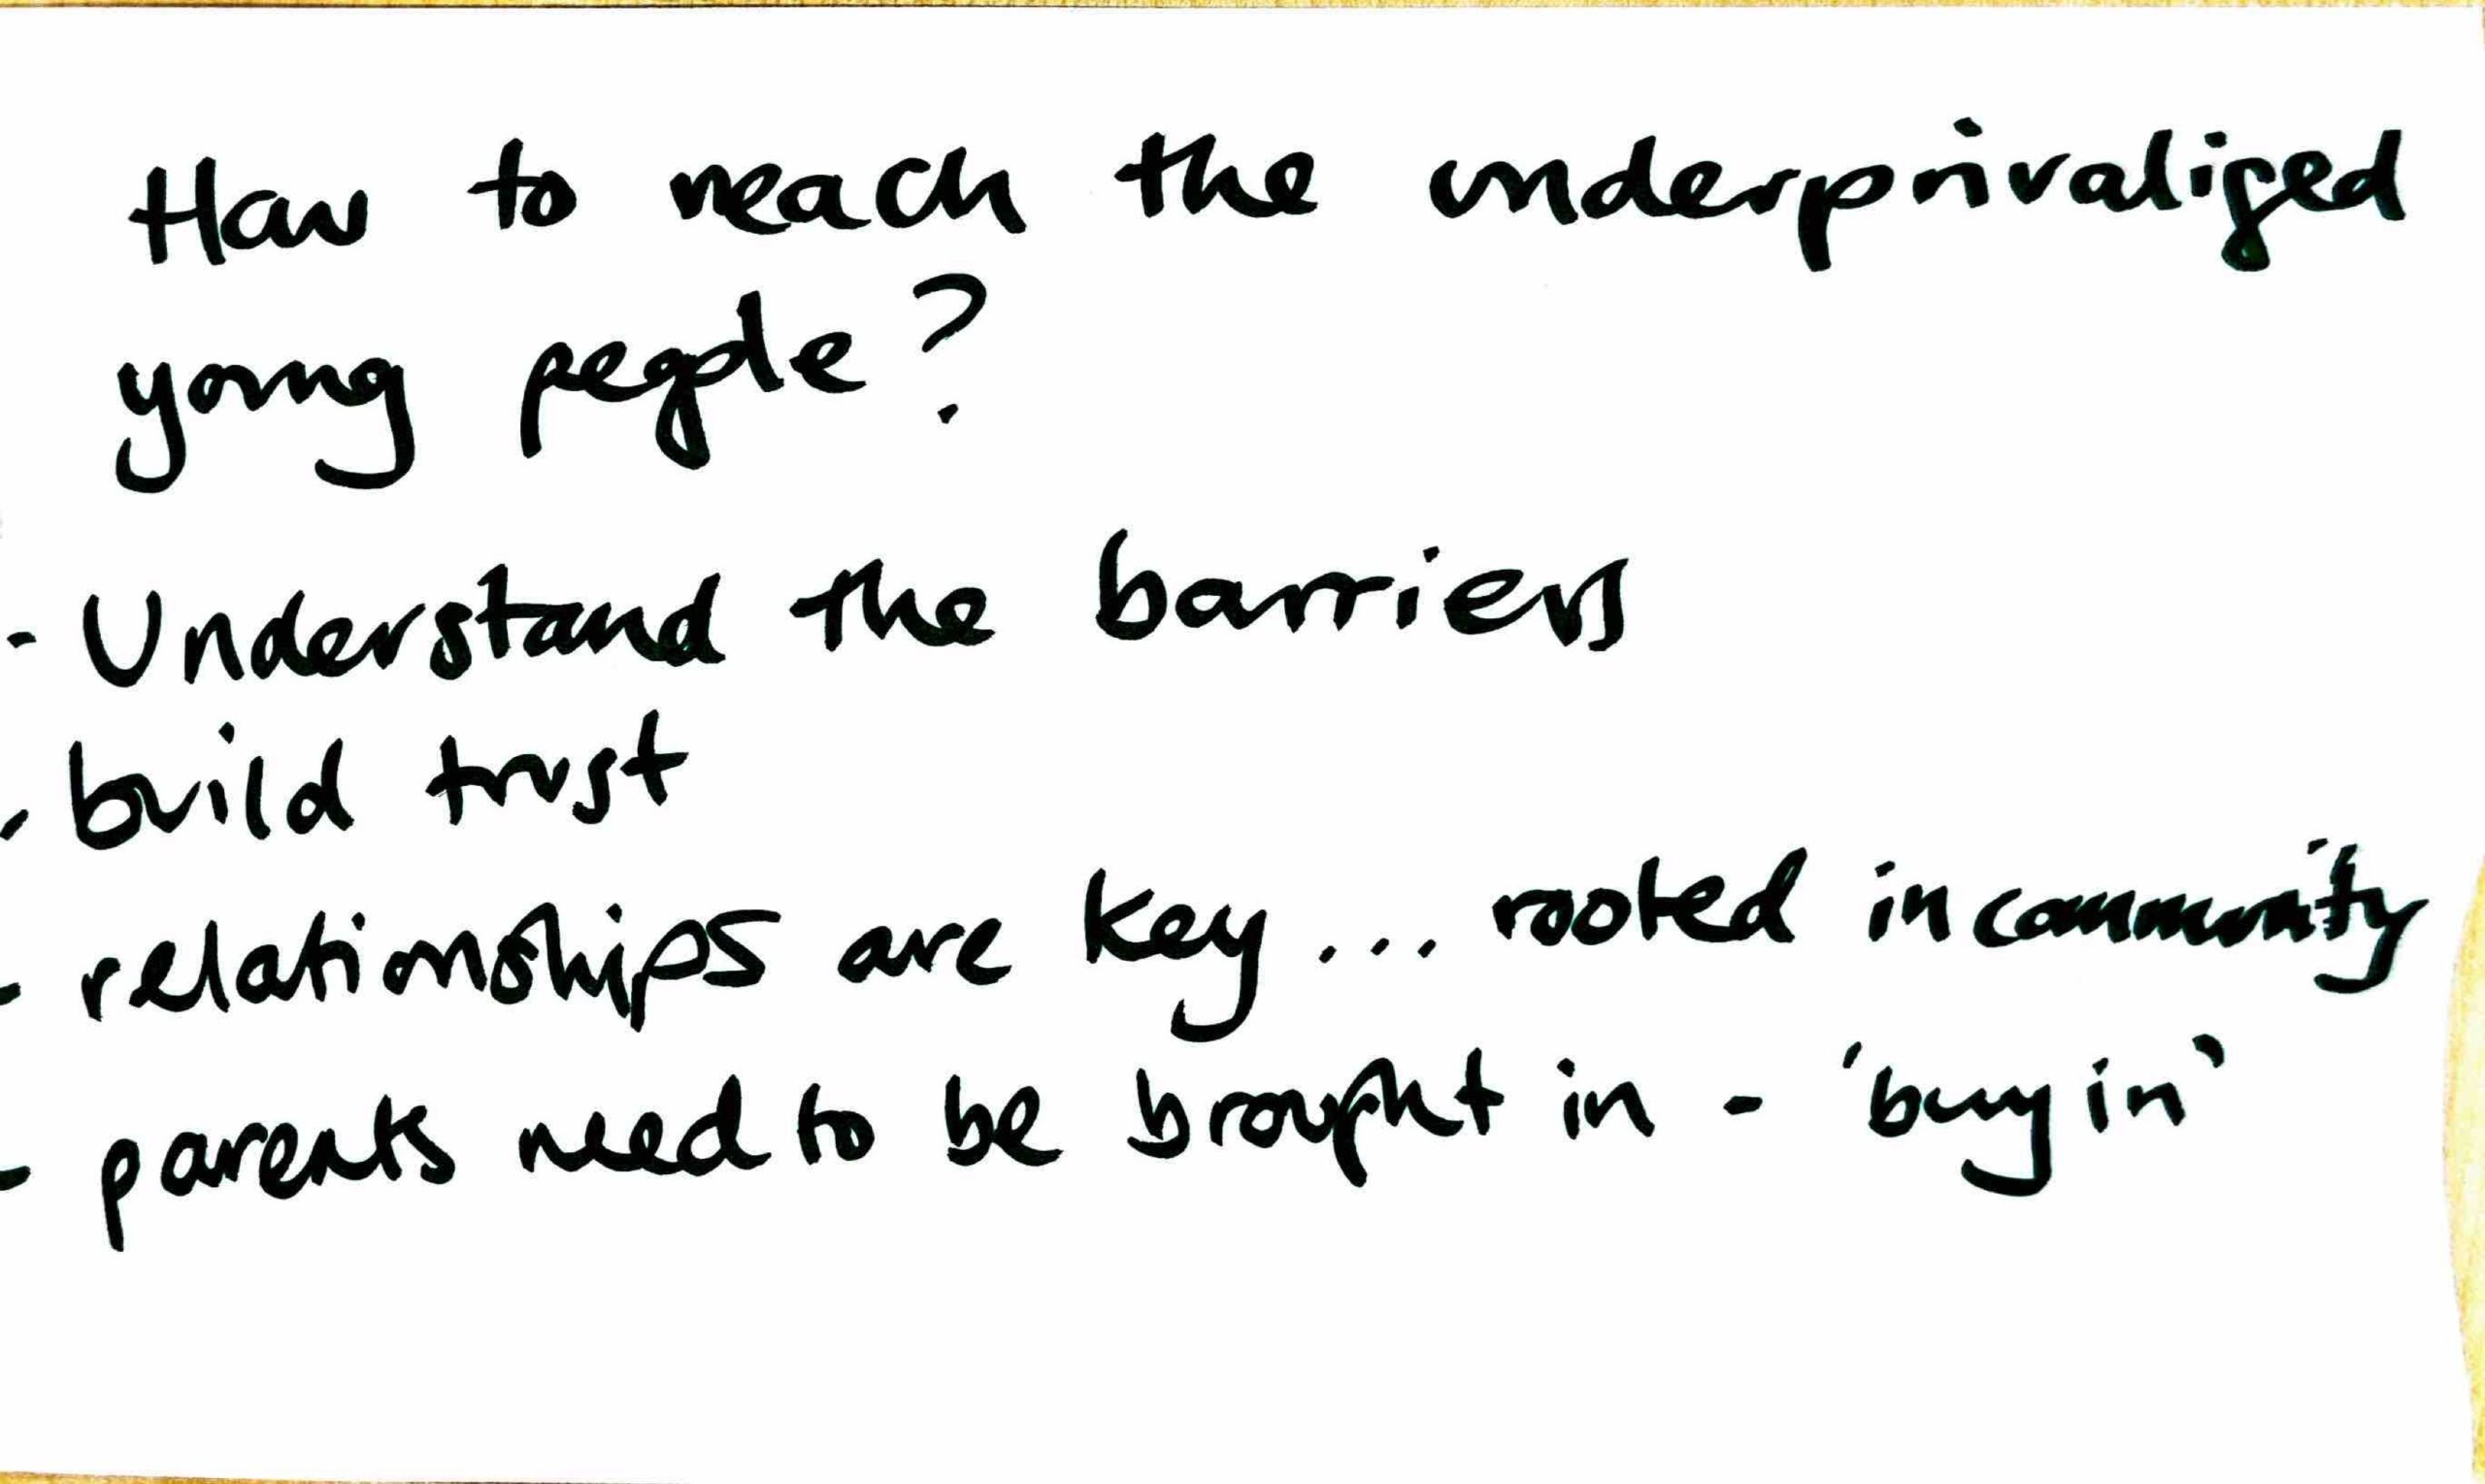 How to reach the underprivaliged
young people?
- Understand the barriers
- build trust
- relationships are key... rooted in community
- parents need to be brought in - 'buy in'